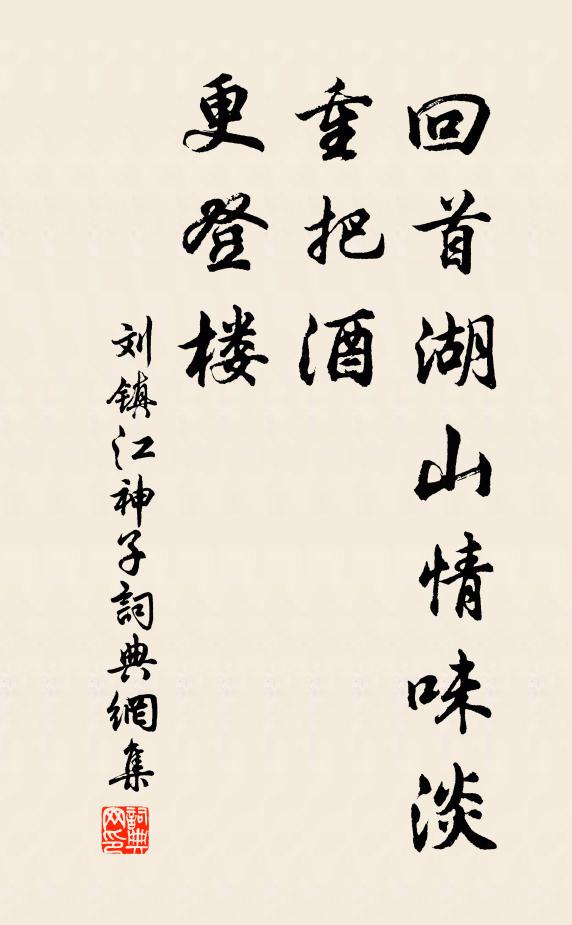 回首湖山情味淡
重把酒
更登楼
刘镇江神子詞典網集
詞典
网印